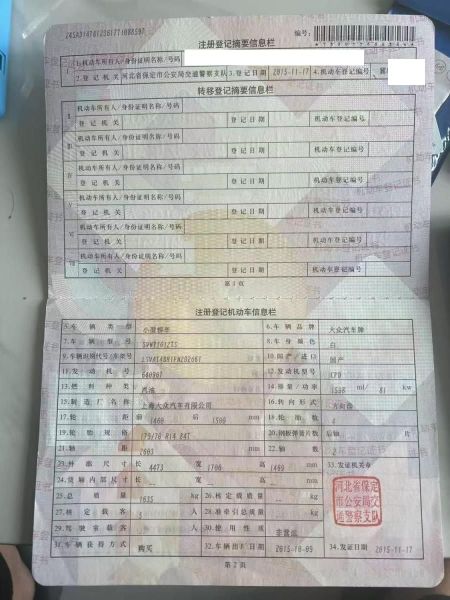 注册登记摘要信息栏
编号:
1.机动车所有人/身份证明名称/号码
2.登记机关 河北省保定市公安局交通警察支队 3.登记日期 2015-11-17 4.机动车登记编号 冀
转移登记摘要信息栏
机动车所有人/身份证明名称/号码
登记机关 登记日期 机动车登记编号
机动车所有人/身份证明名称/号码
登记机关 登记日期 机动车登记编号
机动车所有人/身份证明名称/号码
登记机关 登记日期 机动车登记编号
机动车所有人/身份证明名称/号码
登记机关 登记日期 机动车登记编号
机动车所有人/身份证明名称/号码
登记机关 登记日期 机动车登记编号
第1页
注册登记机动车信息栏
5.车辆类型 小型轿车 6.车辆品牌 大众汽车牌
7.车辆型号 8.车身颜色 白
9.车辆识别代号/车架号 10.国产/进口 国产
11.发动机号 12.发动机型号
13.燃料种类 汽油 14.排量/功率 1598 ml/ 81 kw
15.制造厂名称 上海大众汽车有限公司 16.转向形式 方向盘
17.轮距 前 1460 后 1500 mm 18.轮胎数 4
19.轮胎规格 175/70 R14 84T 20.钢板弹簧片数 后轴 片
21.轴距 2603 mm 22.轴数 2
23.外廓尺寸 长 4473 宽 1706 高 1469 mm 33.发证机关章
24.货厢内部尺寸 长 宽 高 mm
25.总质量 1635 kg 26.核定载质量 kg
27.核定载客 5 人 28.准牵引总质量 kg
29.驾驶室载客 人 30.使用性质 非营运
31.车辆获得方式 购买 32.车辆出厂日期 2015-10-05 34.发证日期 2015-11-17
河北省保定
市公安局交
通警察支队
第2页